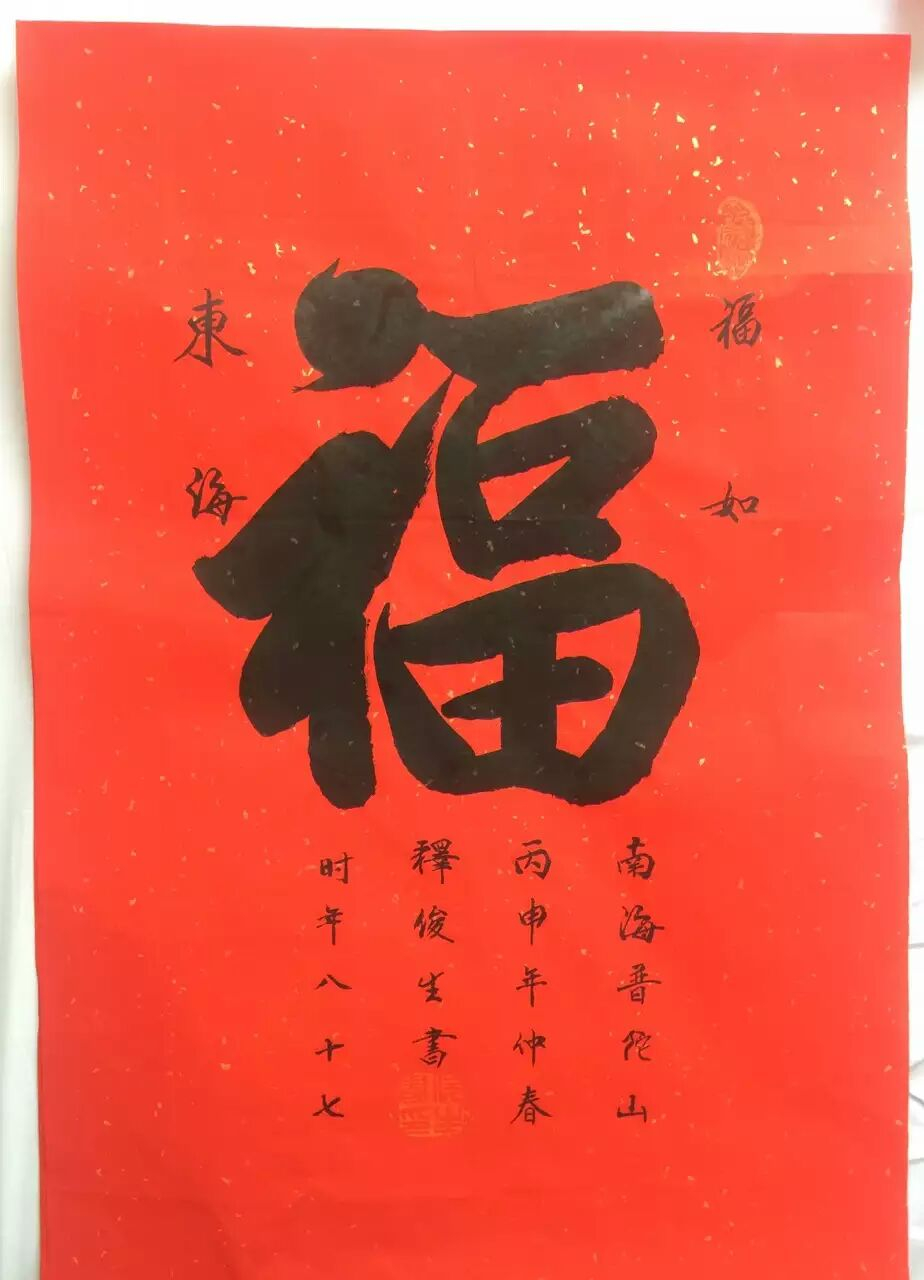 福如
東海
福
南海普陀山
丙申年仲春
釋俊生書
时年八十七